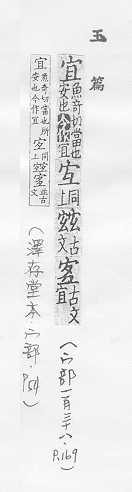 玉篇
宜魚奇切當也安也今作宜宐上同古文古文
(宀部一百三十八·P.169)
宜魚奇切當也所安也今作宜宐上同並古文
(澤存堂本·宀部·P54)